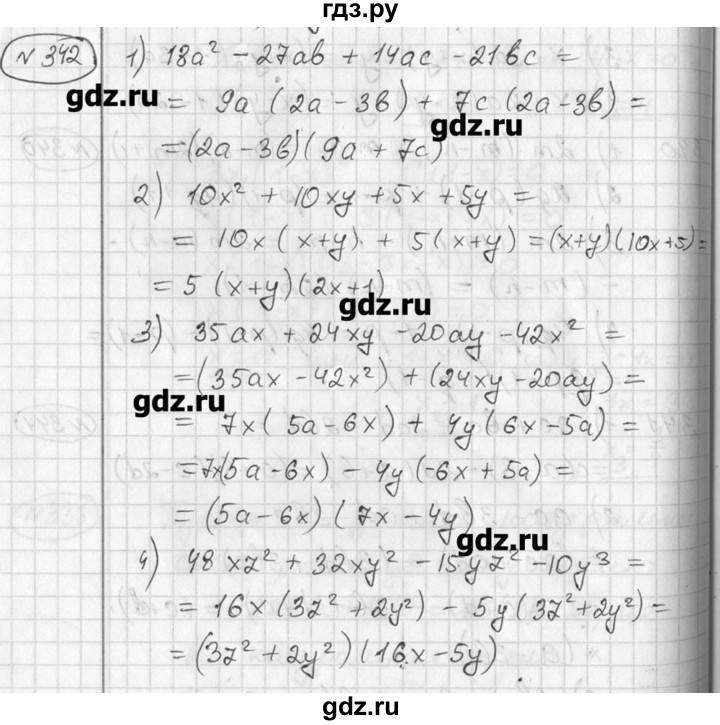 гдз.ру
№ 342 1) 18a² - 27ab + 14ac - 21bc =
gdz.ru
= 9a (2a - 3b) + 7c (2a - 3b) =
gdz.ru
= (2a - 3b) (9a + 7c)
2) 10x² + 10xy + 5x + 5y =
= 10x (x+y) + 5(x+y) = (x+y)(10x+5) =
= 5 (x+y)(2x+1)
gdz.ru
3) 35ax + 24xy - 20ay - 42x² =
= (35ax - 42x²) + (24xy - 20ay) =
gdz.ru
= 7x( 5a - 6x) + 4y (6x - 5a) =
= 7x(5a - 6x) - 4y (-6x + 5a) =
= (5a - 6x) (7x - 4y)
gdz.ru
4) 48xz² + 32xy² - 15yz² - 10y³ =
= 16x (3z² + 2y²) - 5y (3z² + 2y²) =
= (3z² + 2y²) (16x - 5y)